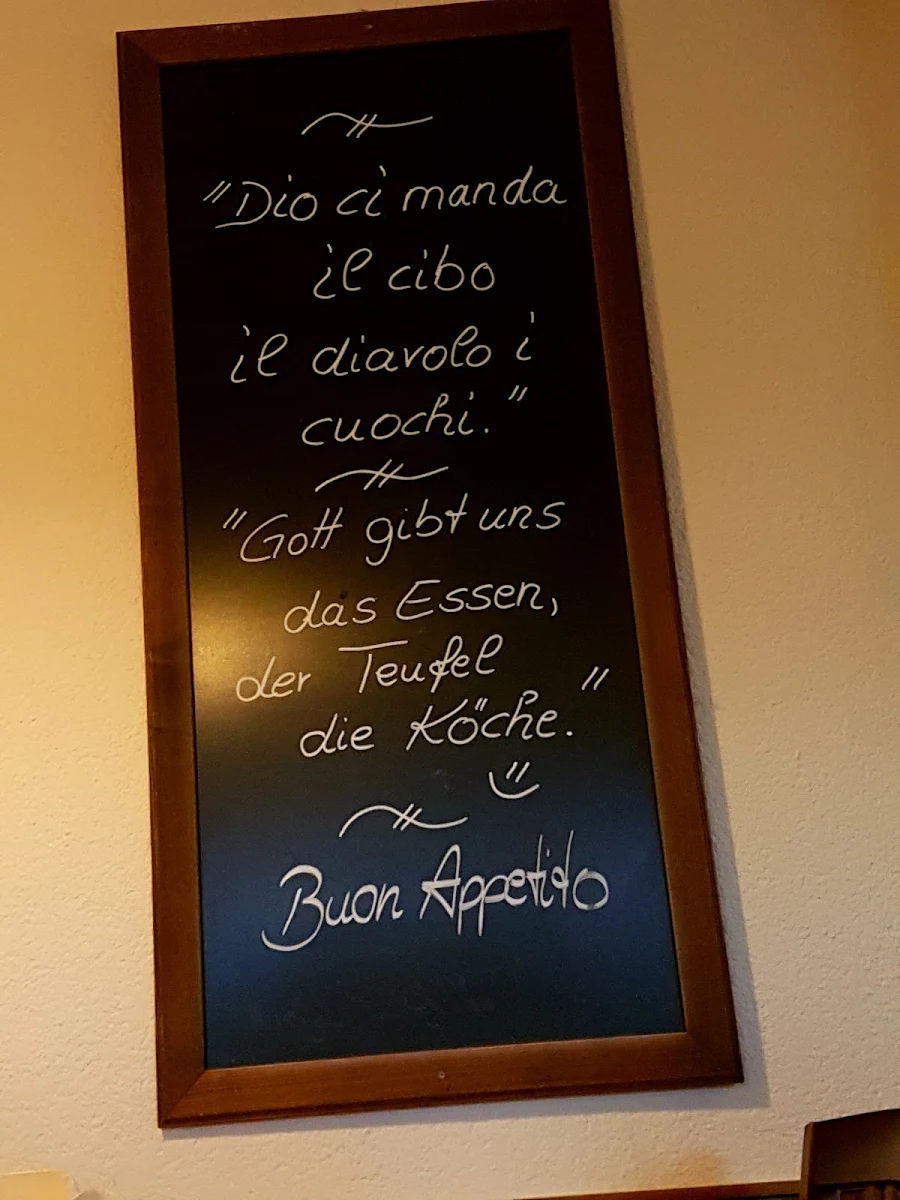 "Dio ci manda
il cibo
il diavolo i
cuochi."
"Gott gibt uns
das Essen,
der Teufel
die Köche."
Buon Appetito